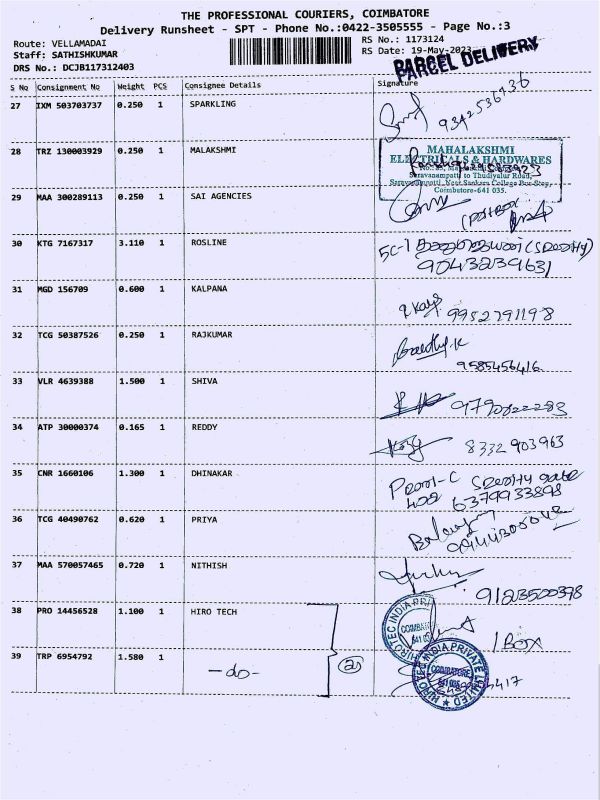 THE PROFESSIONAL COURIERS, COIMBATORE
Delivery Runsheet - SPT - Phone No.:0422-3505555 - Page No.:3
Route: VELLAMADAI
RS No.: 1173124
Staff: SATHISHKUMAR
RS Date: 19-May-2023
DRS No.: DCJB117312403
PARCEL DELIVERY
S No Consignment No Weight PCS Consignee Details Signature
27 IXM 503703737 0.250 1 SPARKLING
9342536736
28 TRZ 130003929 0.250 1 MALAKSHMI
MAHALAKSHMI
ELECTRICALS & HARDWARES
Saravanampatti to Thudiyalur Road,
Saravanampatti, Near Sankara College Bus Stop,
Coimbatore-641 035.
29 MAA 300289113 0.250 1 SAI AGENCIES
30 KTG 7167317 3.110 1 ROSLINE
5C-1
9043239631
31 MGD 156709 0.600 1 KALPANA
9952791198
32 TCG 50387526 0.250 1 RAJKUMAR
9585456416
33 VLR 4639388 1.500 1 SHIVA
9790822283
34 ATP 30000374 0.165 1 REDDY
8332903963
35 CNR 1660106 1.300 1 DHINAKAR
6379933898
36 TCG 40490762 0.620 1 PRIYA
37 MAA 570057465 0.720 1 NITHISH
9123500378
38 PRO 14456528 1.100 1 HIRO TECH
1 BOX
39 TRP 6954792 1.580 1 -do- (2)